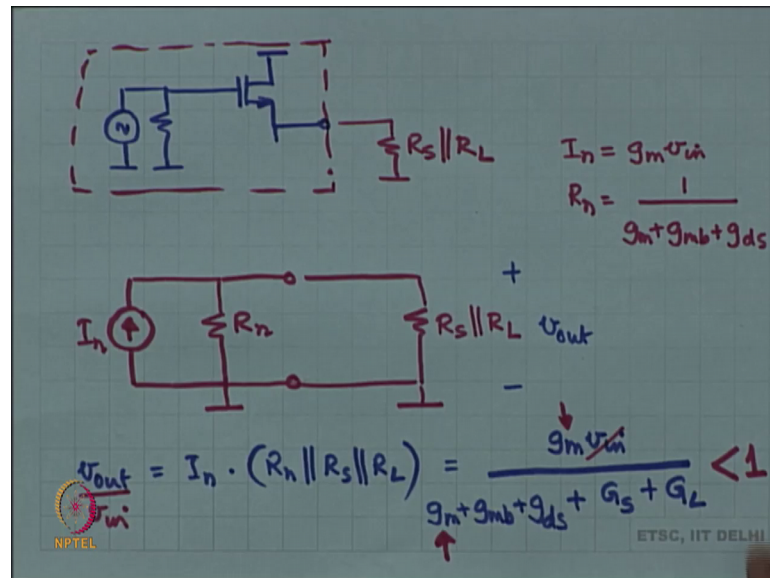 ~
R_S||R_L
I_n = g_m v_in
R_n = 1 / (g_m + g_mb + g_ds)
I_n
R_n
R_S||R_L
+
v_out
−
v_out / v_in = I_n · (R_n || R_S || R_L) = g_m v_in / (g_m + g_mb + g_ds + G_S + G_L) < 1
NPTEL
ETSC, IIT DELHI